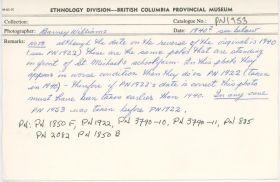 ETHNOLOGY DIVISION—BRITISH COLUMBIA PROVINCIAL MUSEUM
Collection:
Catalogue No.: PN1953
Photographer: Barney Williams
Date: 1940? see below
Remarks: NOTE although the date on the reverse of the original is 1940
(see PN1922) these are the same poles that are standing
in front of St Michael's school form. In this photo they
appear in worse condition than they do in PN 1922 (taken
in 1940) - therefore if PN 1922's date is correct this photo
must have been taken earlier than 1940. In any case
PN 1953 was taken before PN 1922.
PN: PN 1850 F, PN 1922, PN 3790-10, PN 3790-11, PN 885
PN 2082 PN 1850 B